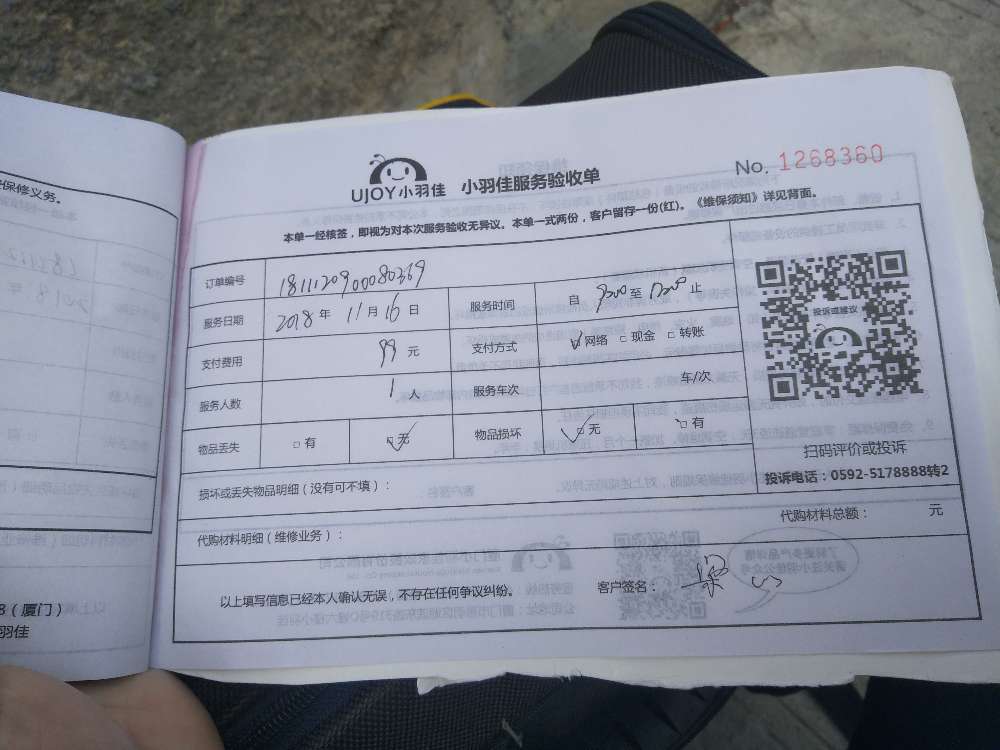 保修义务。
8（厦门）
羽佳
UJOY小羽佳 小羽佳服务验收单 No. 1268360
本单一经核签，即视为对本次服务验收无异议。本单一式两份，客户留存一份(红)。《维保须知》详见背面。
订单编号 1811120900080369
服务日期 2018 年 11 月 16 日 服务时间 自 至 止
支付费用 99 元 支付方式 网络 □ 现金 □ 转账
服务人数 1 人 服务车次 车/次
物品丢失 □ 有 □ 无 物品损坏 □ 无 □ 有
投诉或建议
扫码评价或投诉
投诉电话：0592-5178888转2
损坏或丢失物品明细（没有可不填）：
代购材料明细（维修业务）： 代购材料总额： 元
以上填写信息已经本人确认无误，不存在任何争议纠纷。 客户签名：